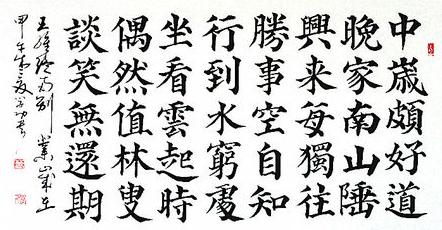 中歲頗好道
晚家南山陲
興来每獨往
勝事空自知
行到水窮處
坐看雲起時
偶然值林叟
談笑無還期
王維終南別業歲在
甲午